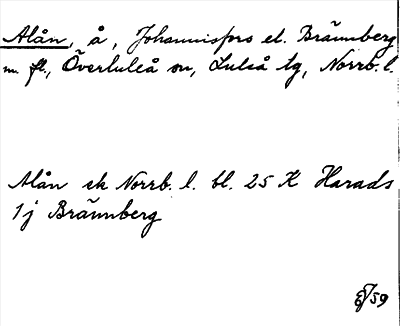 Alån, å, Johannisfors el. Brännberg
m. fl., Överluleå sn, Luleå tg, Norrb. l.
Alån ek Norrb. l. bl. 25 K Harads
1j Brännberg
59